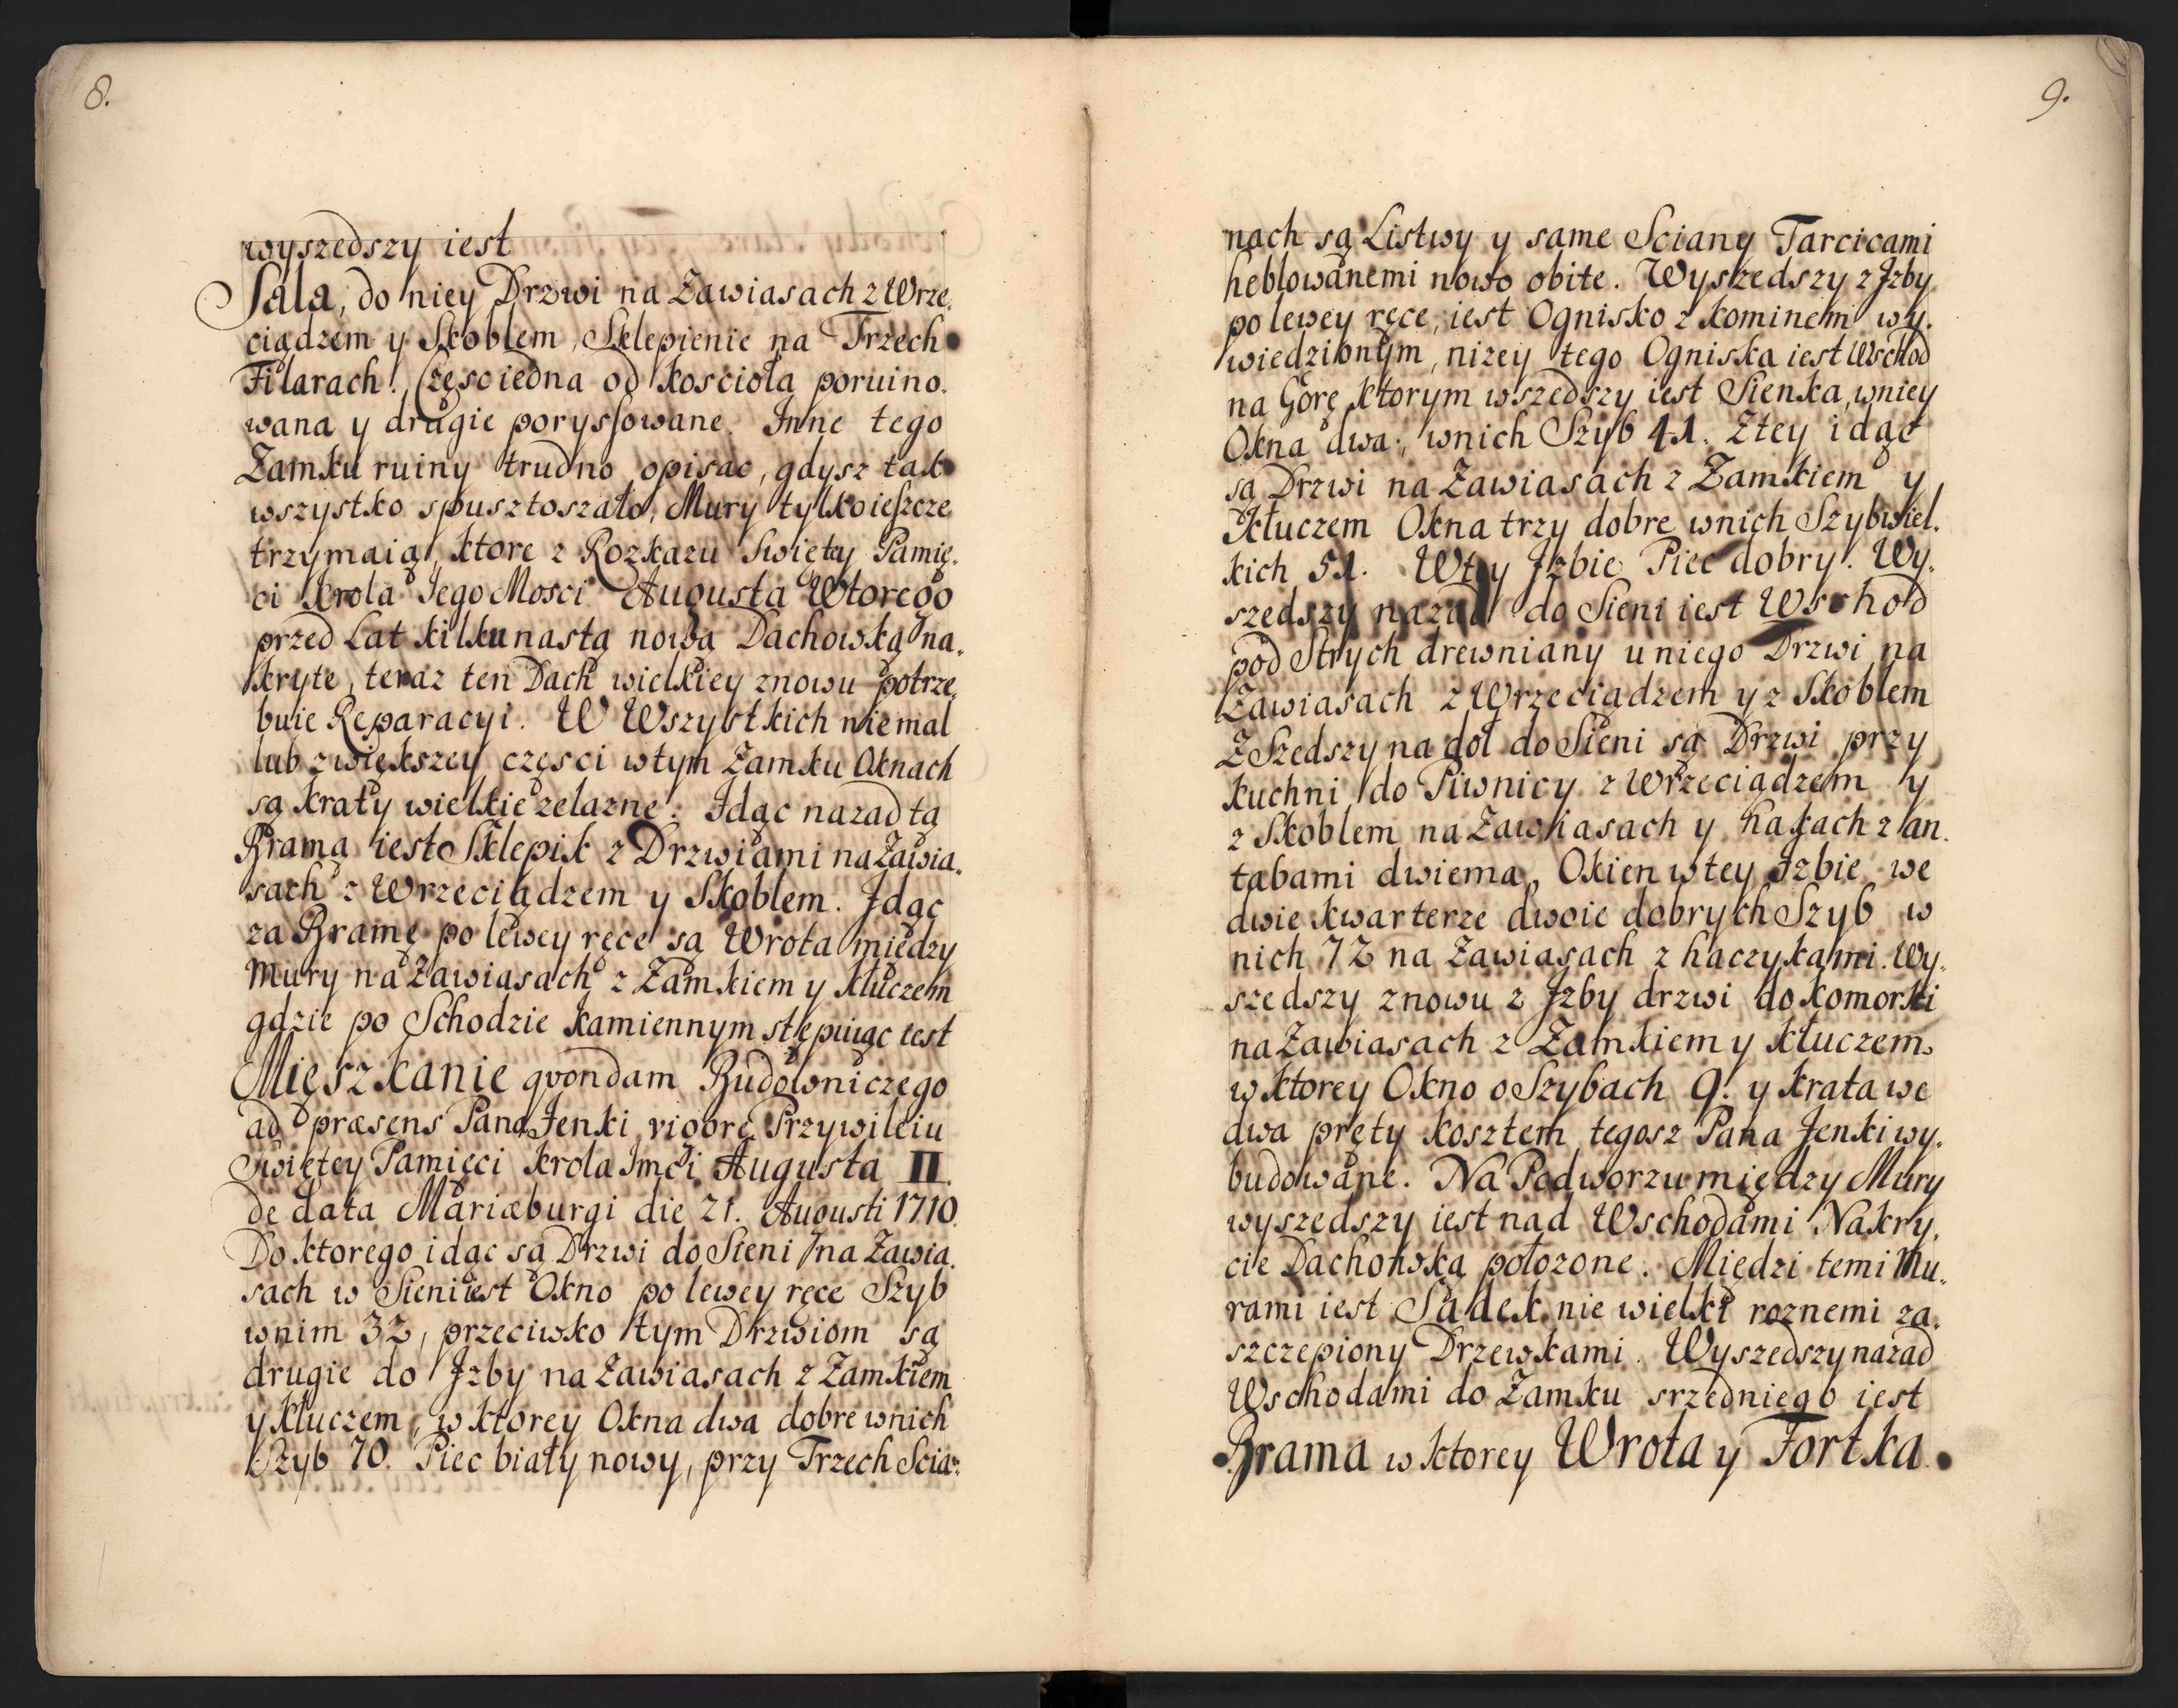 8.
wyszedszy iest
Sala, do niey Drzwi na Zawiasach z Wrze,
ciądzem y Skoblem, Sklepienie na Trzech
Filarach. Częsc iedna od Kosciola poruino,
wana y drugie porysſowane. Inne tego
Zamku ruiny trudno opisac, gdysz tak
wszystko spusztoszało, Mury tylko ieſzcze
trzymaią, ktore z Rozkazu Swiętey Pamię,
ci Krola Iego Mosci Augusta Wtorego
przed Lat kilkunastą nową Dachowską na,
kryte, teraz ten Dach wielkiey znowu potrze,
buie Reparacyi. W Wszystkich niemal
lub z większey częsci w tym Zamku Oknach
są kraty wielkie zelazne. Idąc nazad tą
Bramą iest Sklepik z Drzwiami na Zawia,
sach z Wrzeciądzem y Skoblem. Idąc
za Bramę po lewey ręce są Wrota między
Mury na Zawiasach z Zamkiem y kluczem
gdzie po Schodzie kamiennym stępuiąc iest
Mięszkanie qvondam Budowniczego
ad præsens Pana Jenki vigore Przywileiu
Swiętey Pamięci Krola Imci Augusta II.
de data Mariæburgi die 21. Augusti 1710.
Do ktorego idąc są Drzwi do Sieni na Zawia,
sach w Sieni iest Okno po lewey ręce Szyb
w nim 32, przeciwko tym Drzwiom są
drugie do Jzby na Zawiasach z Zamkiem
y kluczem, w ktorey Okna dwa dobre w nich
Szyb 70. Piec biały nowy, przy Trzech Scia,
9.
nach są Listwy y same Sciany Tarcicami
heblowanemi nowo obite. Wyszedszy z Jzby
po lewey ręce, iest Ognisko z kominem wy,
wiedzionym, nizey tego Ogniska iest Wschod
na Gorę ktorym wszedszy iest Sienka, w niey
Okna dwa, w nich Szyb 41. Z tey idąc
są Drzwi na Zawiasach z Zamkiem y
Kluczem Okna trzy dobre w nich Szyb wiel,
kich 51. W tey Jzbie Piec dobry. Wy,
szedszy nazad do Sieni iest Wschod
pod Strych drewniany u niego Drzwi na
Zawiasach z Wrzeciadzem y z Skoblem
Z Szedszy na dol do Sieni są Drzwi przy
kuchni do Piwnicy z Wrzeciądzem y
z Skoblem na Zawiasach y hakach z an,
tabami dwiema. Okien w tey Izbie we
dwie kwarterze dwoie dobrych Szyb w
nich 72 na Zawiasach z haczykami. Wy,
szedszy znowu z Jzby drzwi do komorki
na Zawiasach z Zamkiem y kluczem.
w ktorey Okno o Szybach 9. y krata we
dwa pręty kosztem tegosz Pana Jenki wy,
budowane. Na Podworzu między Mury
wyszedszy iest nad Wschodami Nakry,
cie Dachowską położone. Miedzi temi Mu,
rami iest Sadek nie wielki roznemi za,
szczepiony Drzewkami. Wyszedszy nazad
Wschodami do Zamku srzedniego iest
Brama w ktorey Wrota y Fortka.